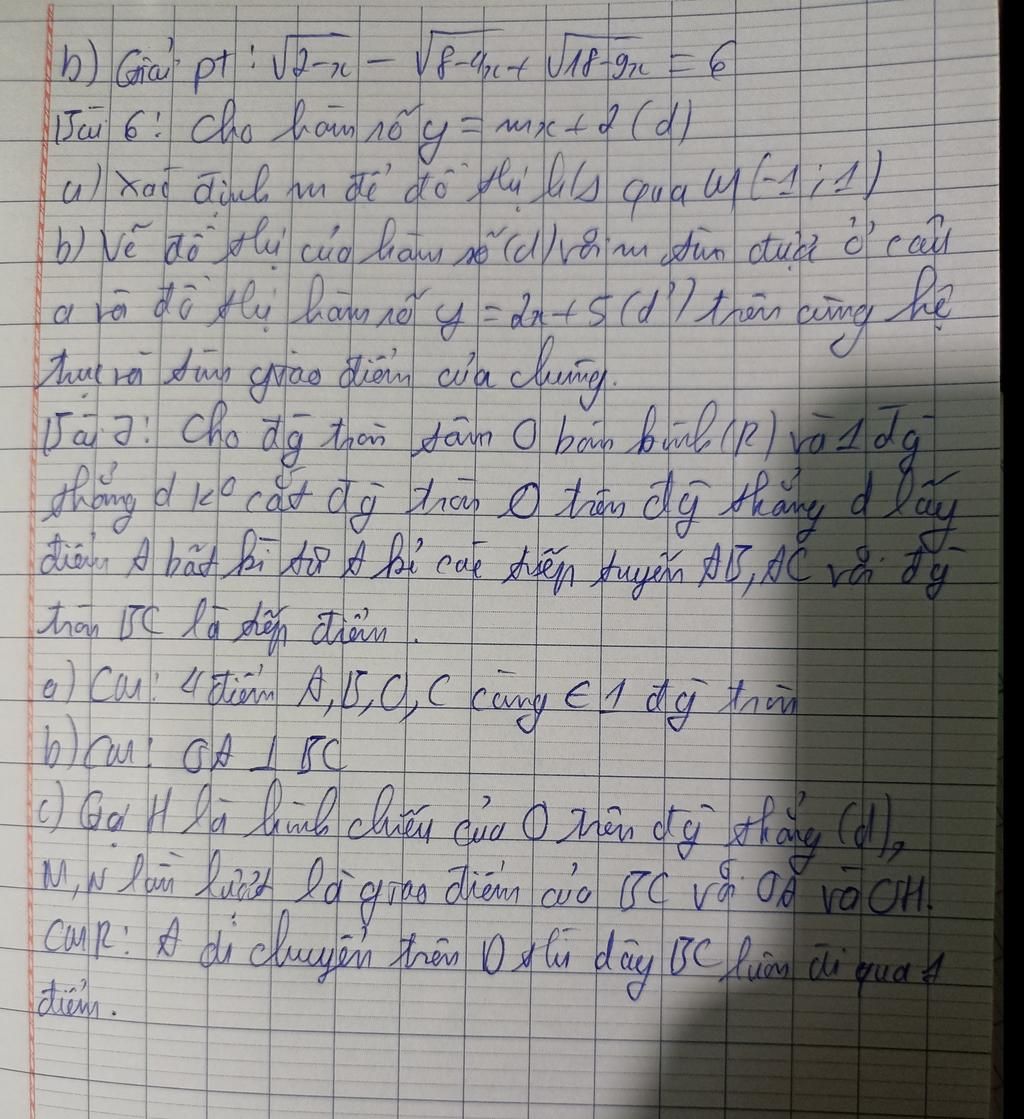 b) Giải pt: √2-x - √8-4x + √18-9x = 6
Bài 6: Cho hàm số y = mx + 2 (d)
a) Xác định m để đồ thị h/s qua M(-1; 1)
b) Vẽ đồ thị của hàm số (d) với m tìm được ở câu
a và đồ thị hàm số y = 2x + 5 (d') trên cùng hệ
trục và tìm giao điểm của chúng.
Bài 7: Cho đg tròn tâm O bán kính (R) và 1 đg
thẳng d ko cắt đg tròn O trên đg thẳng d lấy
điểm A bất kì từ A kẻ các tiếp tuyến AB, AC với đg
tròn BC là tiếp điểm.
a) CM: 4 điểm A, B, O, C cùng ∈ 1 đg tròn
b) CM: OA ⊥ BC
c) Gọi H là hình chiếu của O trên đg thẳng (d),
M, N lần lượt là giao điểm của BC với OA và OH.
CMR: A di chuyển trên D thì dây BC luôn đi qua 1
điểm.